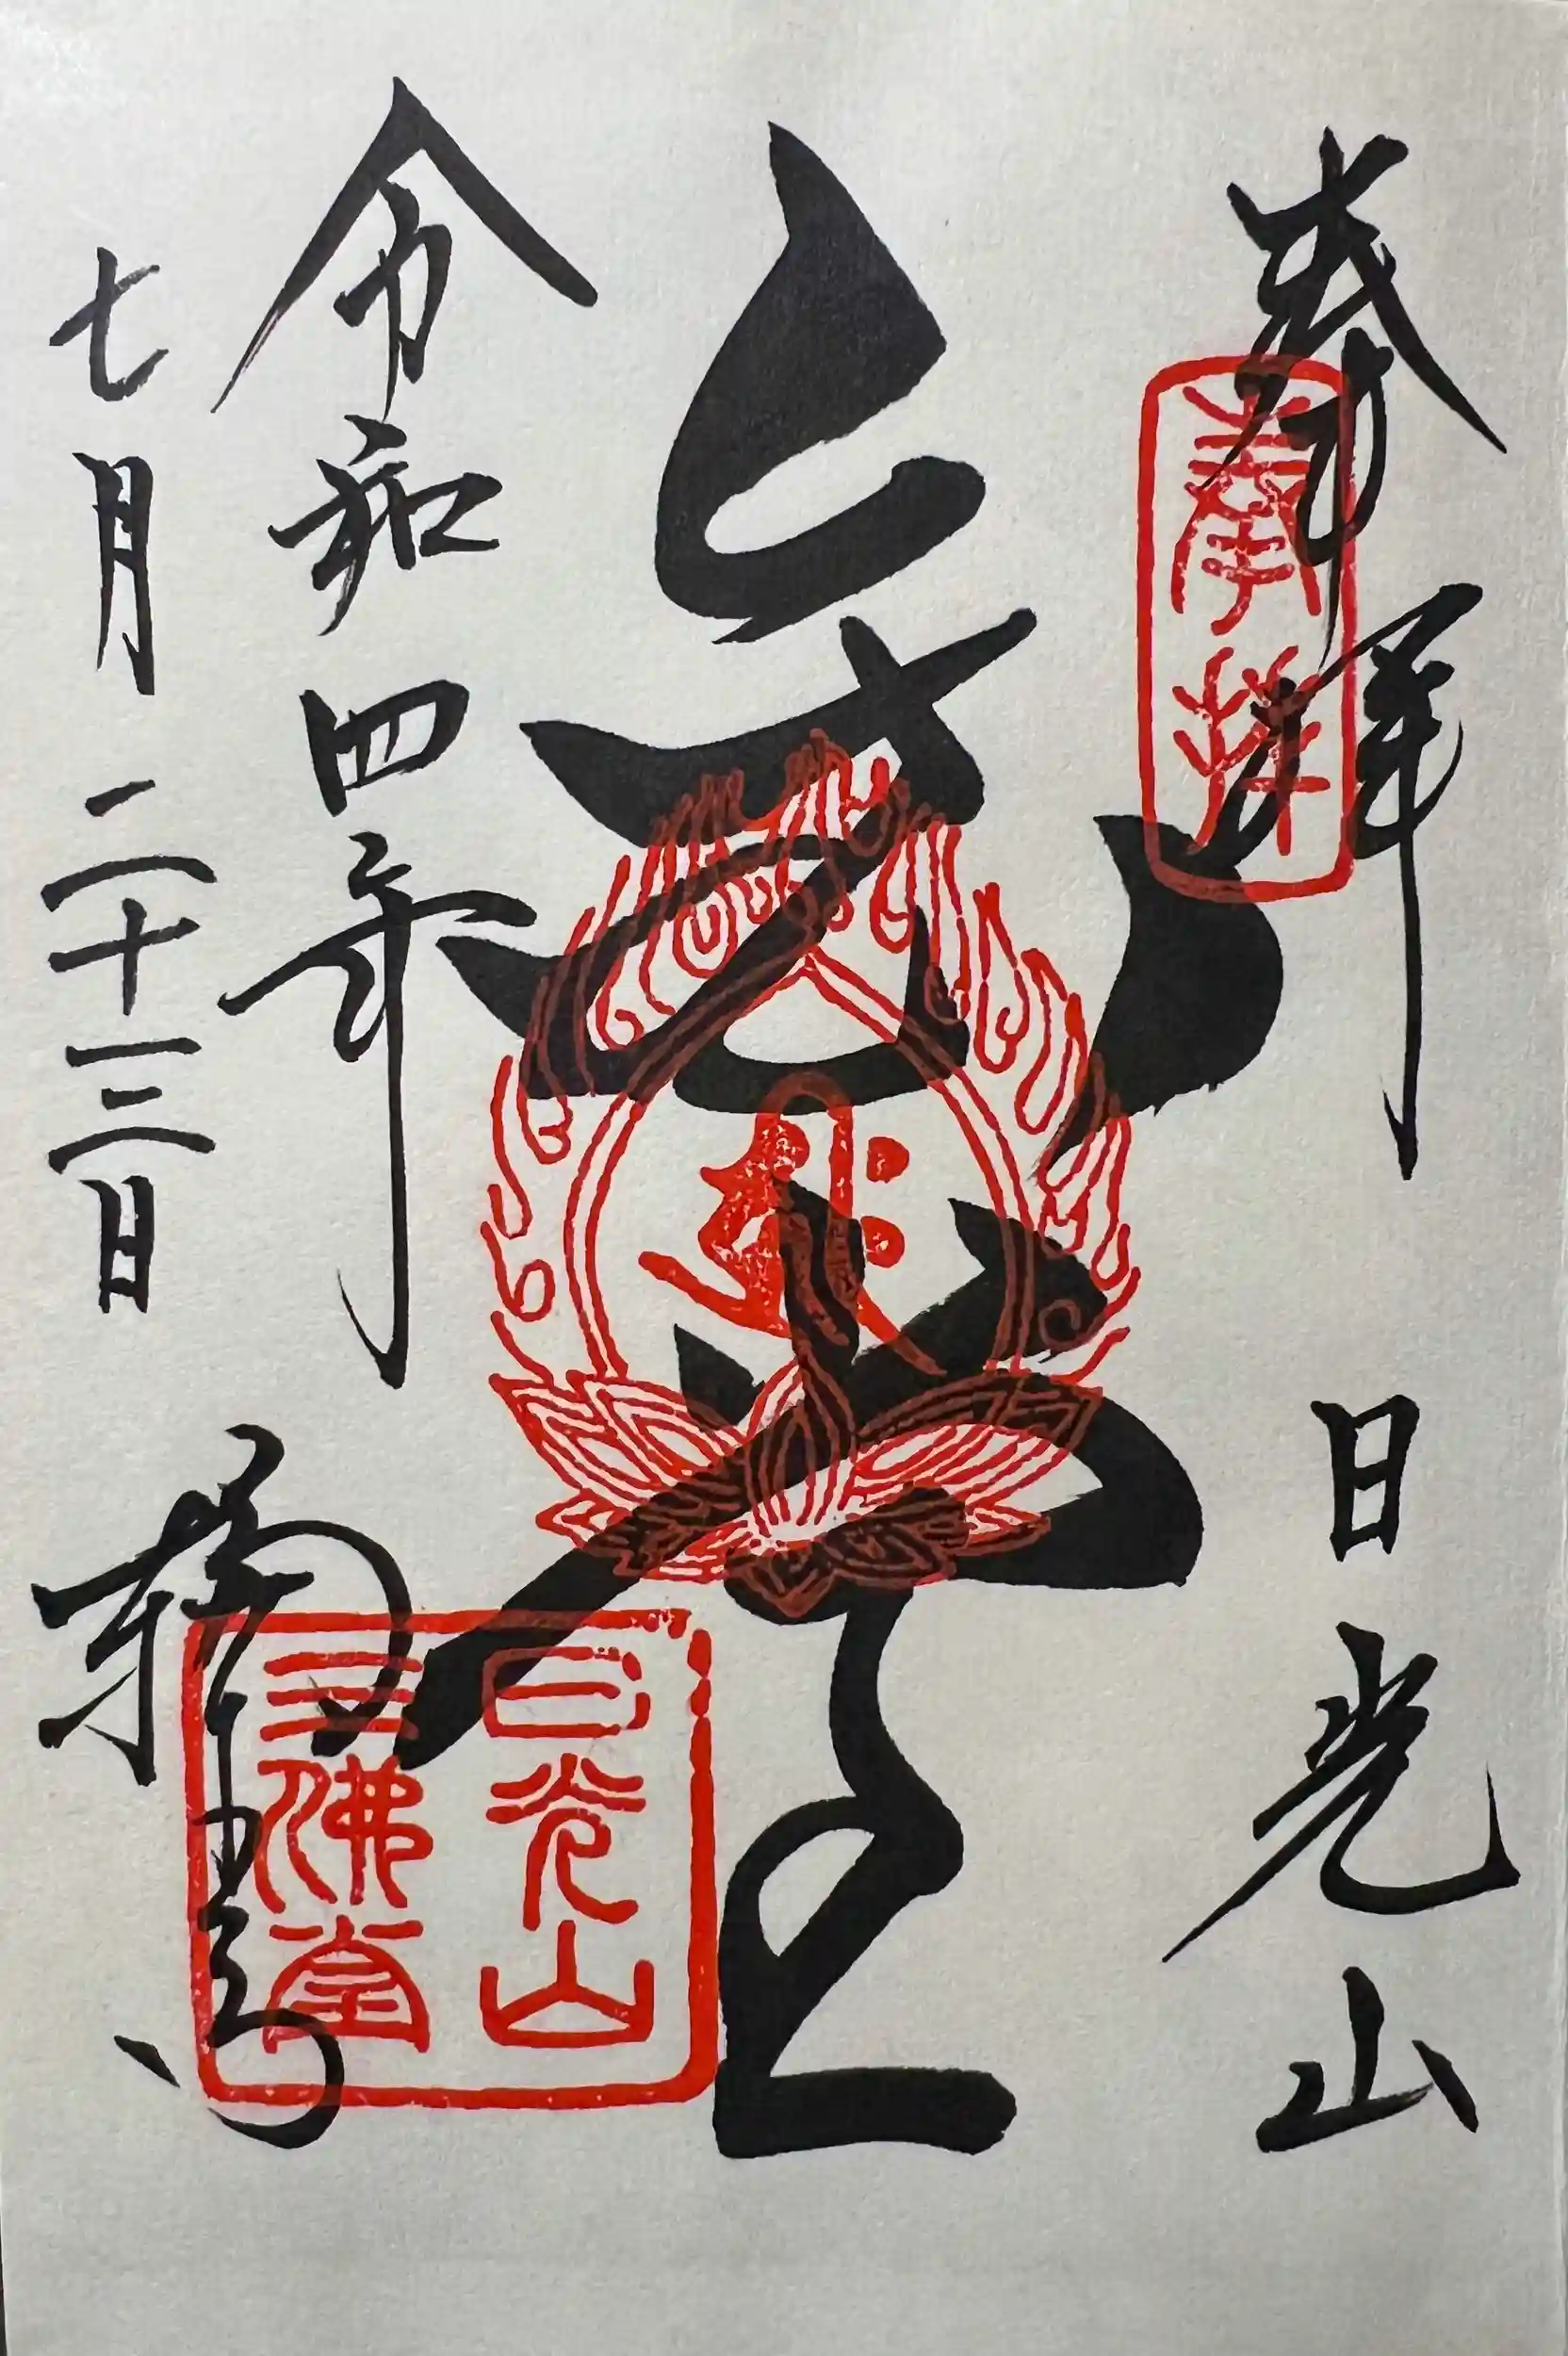 奉拝
奉拝
日光山
令和四年
七月二十三日
輪王寺
日光山
三佛堂